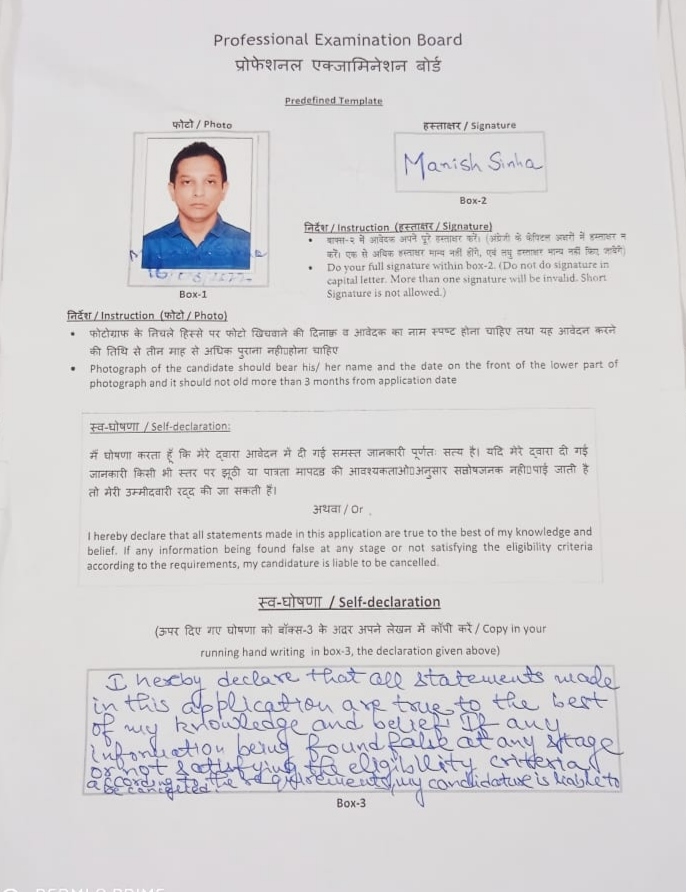 Professional Examination Board
प्रोफेशनल एक्जामिनेशन बोर्ड
Predefined Template
फोटो / Photo
हस्ताक्षर / Signature
Manish Sinha
Box-2
Box-1
निर्देश / Instruction (हस्ताक्षर / Signature)
• बाक्स-२ में आवेदक अपने पूरे हस्ताक्षर करें। (अंग्रेजी के केपिटल अक्षरों में हस्ताक्षर न
करें। एक से अधिक हस्ताक्षर मान्य नहीं होंगे, एवं लघु हस्ताक्षर मान्य नहीं किए जावेंगे)
• Do your full signature within box-2. (Do not do signature in
capital letter. More than one signature will be invalid. Short
Signature is not allowed.)
निर्देश / Instruction (फोटो / Photo)
• फोटोग्राफ के निचले हिस्से पर फोटो खिचवाने की दिनाक व आवेदक का नाम स्पष्ट होना चाहिए तथा यह आवेदन करने
की तिथि से तीन माह से अधिक पुराना नही▯होना चाहिए
• Photograph of the candidate should bear his/ her name and the date on the front of the lower part of
photograph and it should not old more than 3 months from application date
स्व-घोषणा / Self-declaration:
मैं घोषणा करता हूँ कि मेरे द्वारा आवेदन में दी गई समस्त जानकारी पूर्णतः सत्य है। यदि मेरे द्वारा दी गई
जानकारी किसी भी स्तर पर झूठी या पात्रता मापदड की आवश्यकताओ▯अनुसार सतोषजनक नही▯पाई जाती है
तो मेरी उम्मीदवारी रद्द की जा सकती हैं।
अथवा / Or
I hereby declare that all statements made in this application are true to the best of my knowledge and
belief. If any information being found false at any stage or not satisfying the eligibility criteria
according to the requirements, my candidature is liable to be cancelled.
स्व-घोषणा / Self-declaration
(ऊपर दिए गए घोषणा को बॉक्स-3 के अदर अपने लेखन में कॉपी करें / Copy in your
running hand writing in box-3, the declaration given above)
I hereby declare that all statements made
in this application are true to the best
of my knowledge and belief. If any
information being found false at any stage
or not satisfying the eligibility criteria
according to the requirements, my candidature is liable to
be cancelled.
Box-3